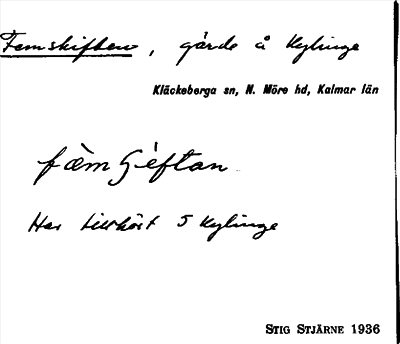 Femskiften, gärde å Kylinge
Kläckeberga sn, N. Möre hd, Kalmar län
fæm
Har tillhört 5 Kylinge
STIG STJÄRNE 1936